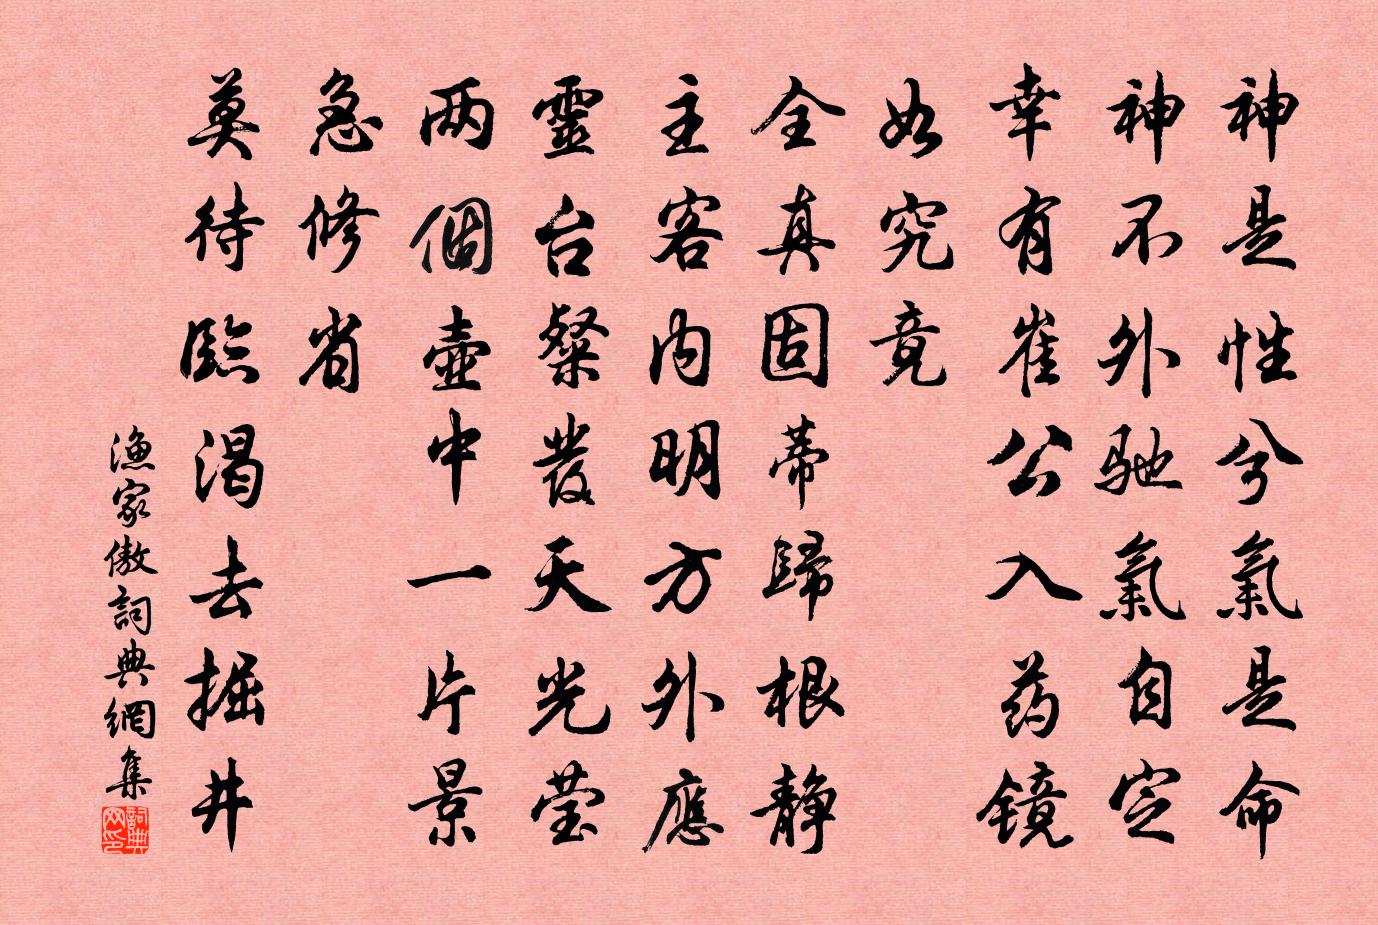 神是性兮氣是命
神不外驰氣自定
幸有崔公入药镜
如究竟
全真固蒂歸根静
主客内明方外應
靈台粲發天光莹
两個壺中一片景
急修省
莫待臨渴去掘井
漁家傲詞典網集
詞典网印